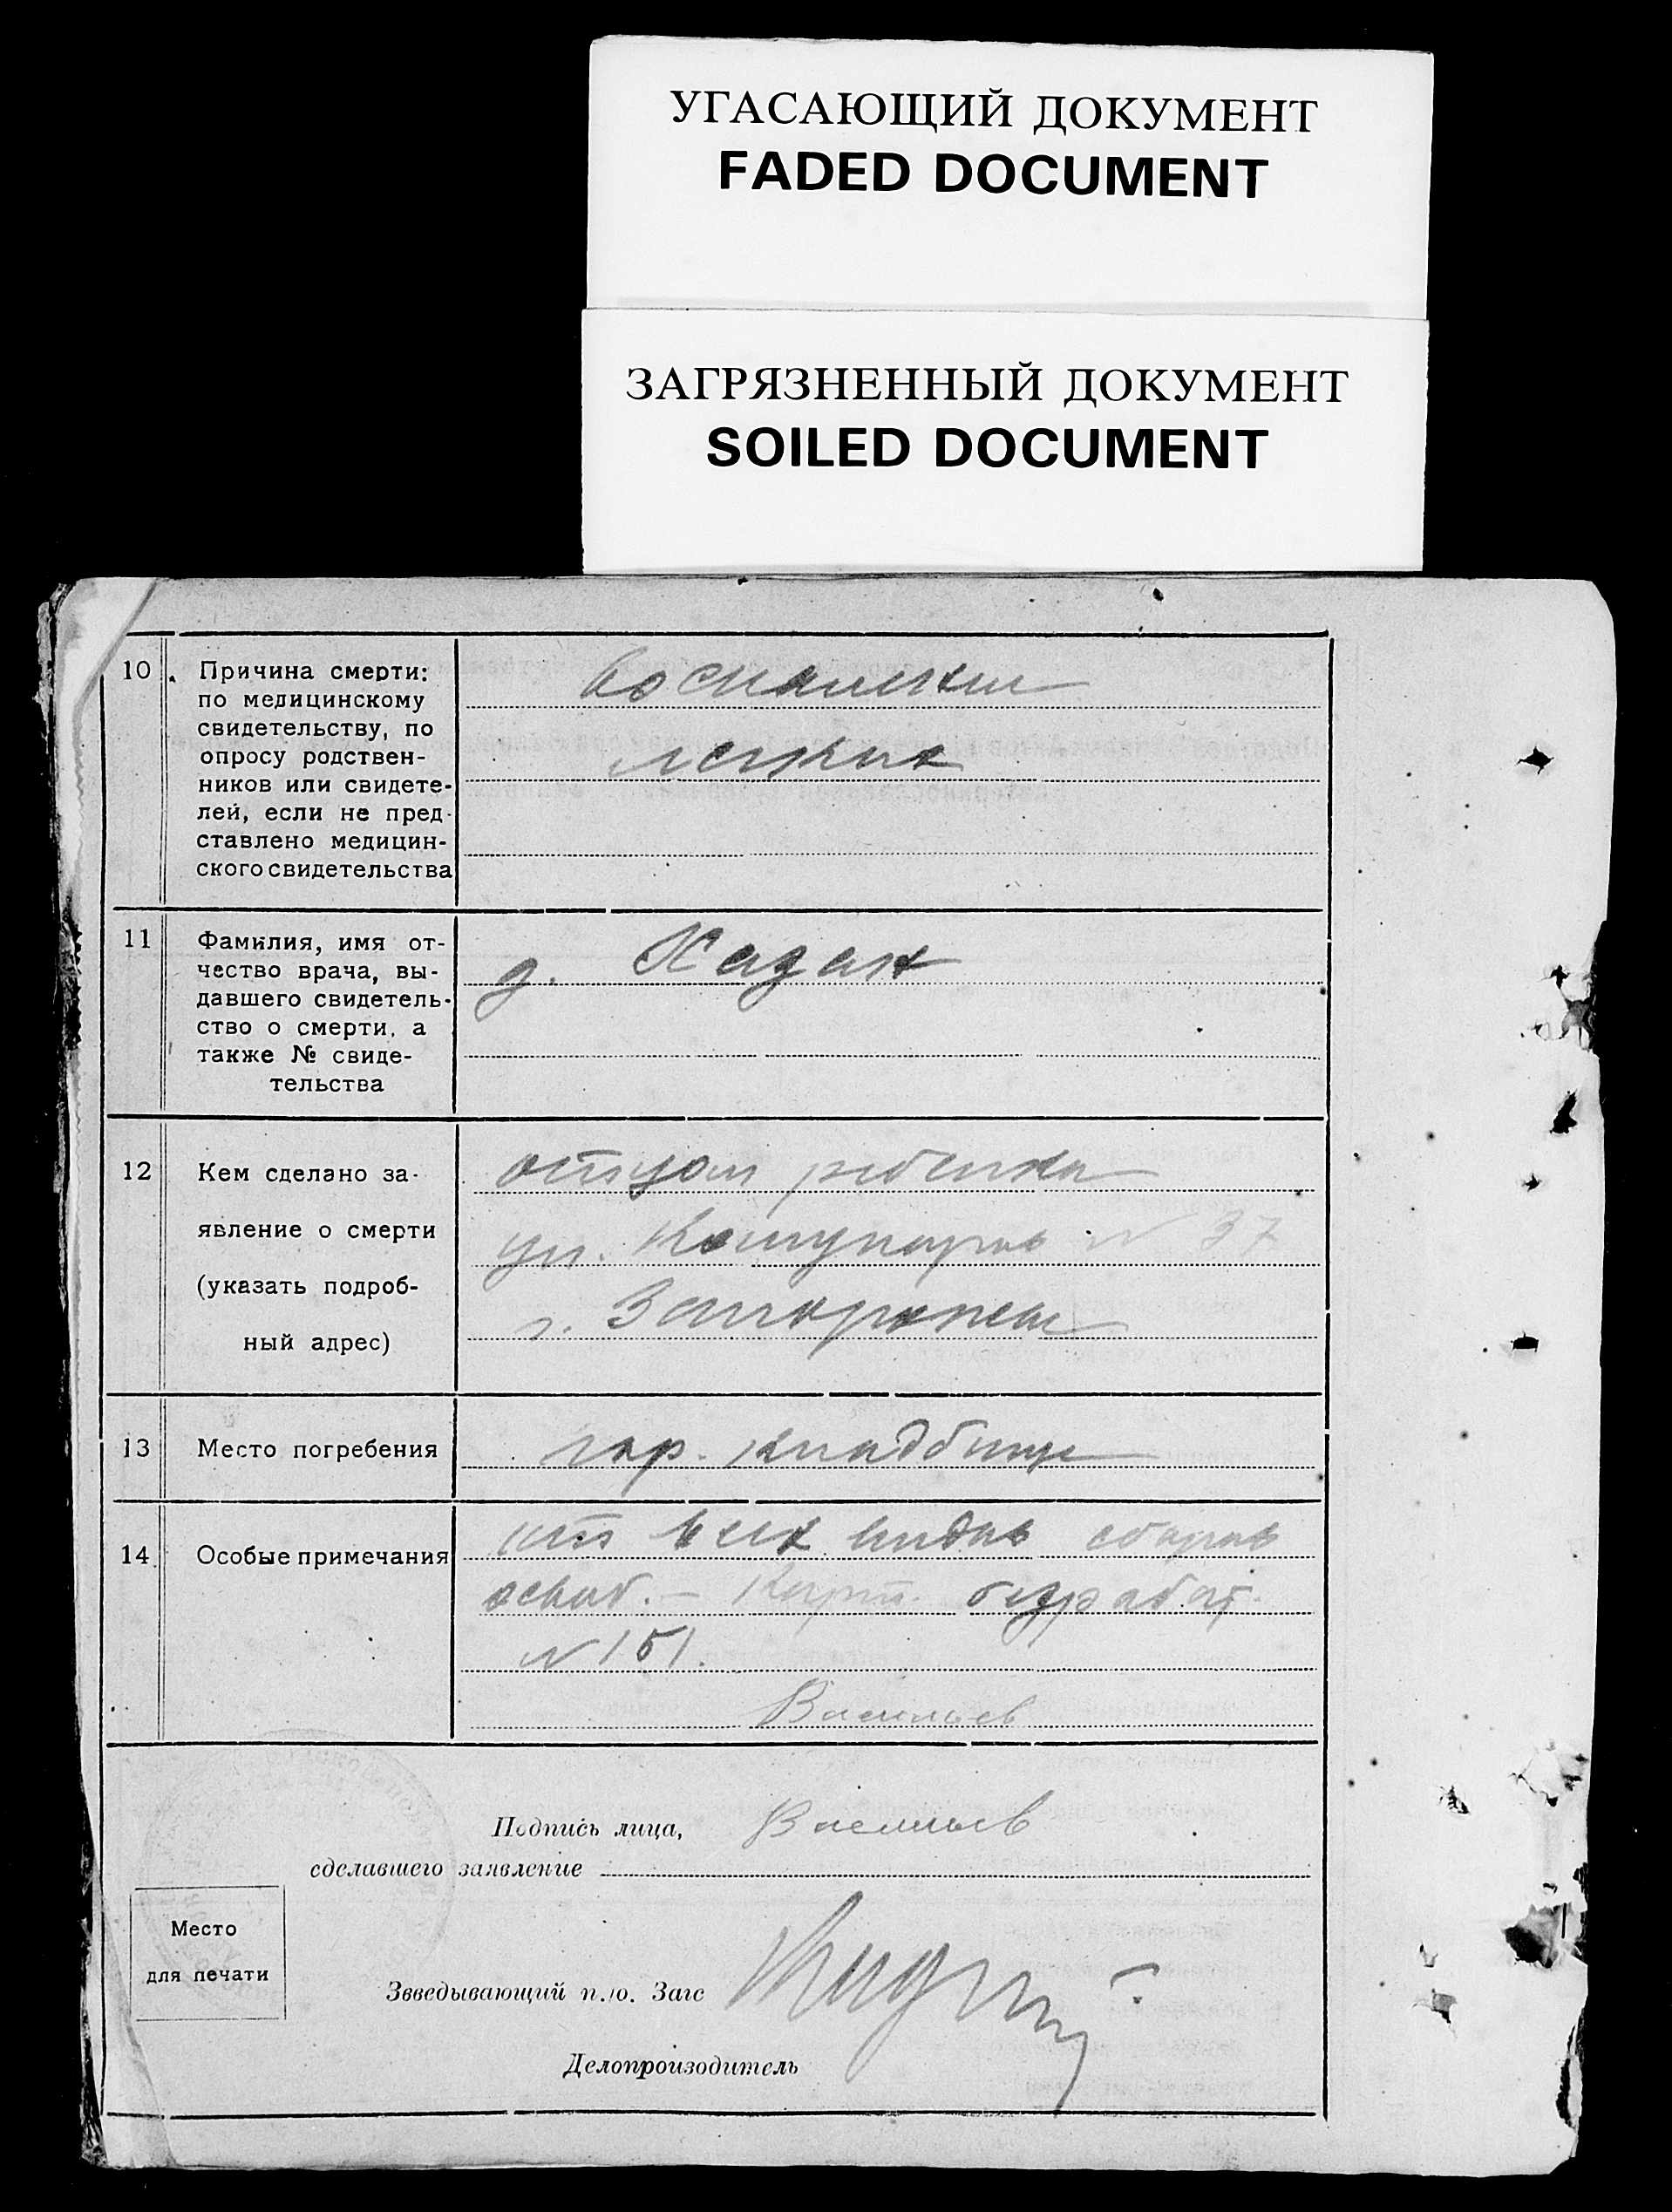 УГАСАЮЩИЙ ДОКУМЕНТ
FADED DOCUMENT
ЗАГРЯЗНЕННЫЙ ДОКУМЕНТ
SOILED DOCUMENT
10. Причина смерти:
по медицинскому
свидетельству, по
опросу родствен-
ников или свидете-
лей, если не пред-
ставлено медицин-
ского свидетельства
легких
11 Фамилия, имя от-
чество врача, вы-
давшего свидетель-
ство о смерти, а
также № свиде-
тельства
д. Казак
12 Кем сделано за-
явление о смерти
(указать подроб-
ный адрес)
отцом ребенка
ул. Комунаров № 37
г. Запорожье
13 Место погребения
гор. кладбище
14. Особые примечания
от всех видов сборов
освоб. — Карт. безработ.
N 151.
Васильев
Подпись лица,
сделавшего заявление
Васильев
Место
для печати
Звведывающий п.ю. Загс
Делопроизводитель